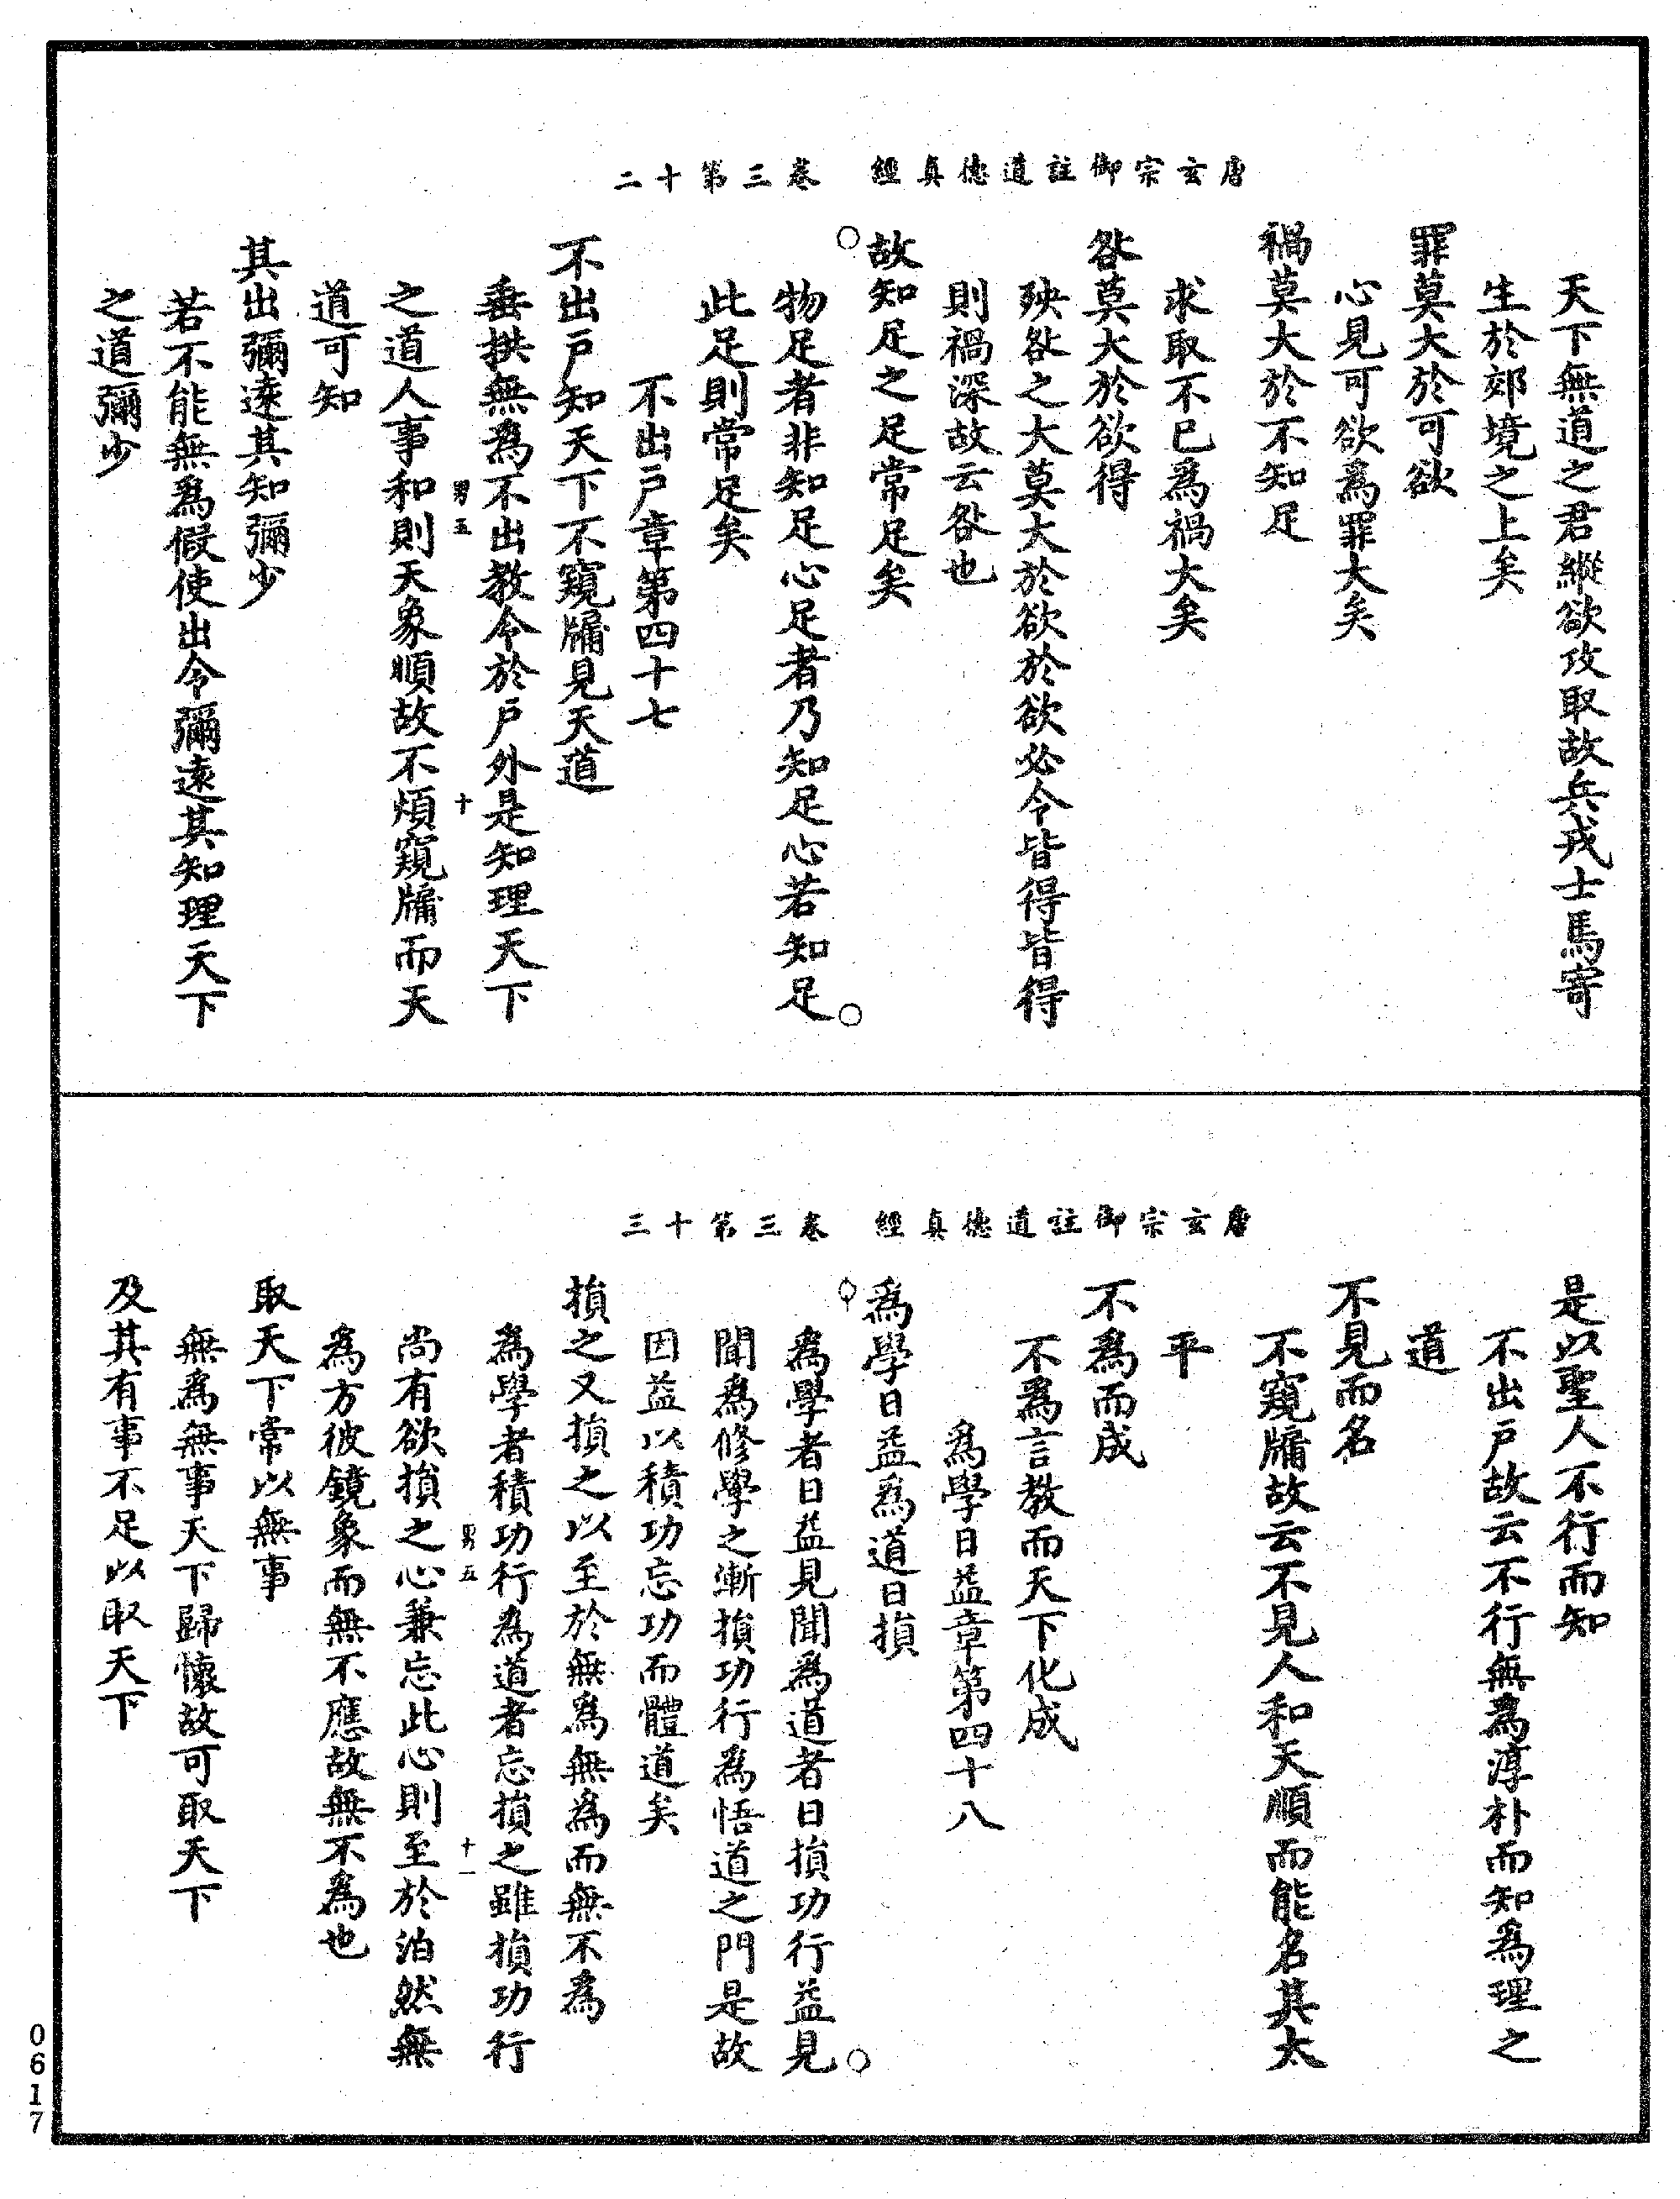 唐玄宗御註道德真經　卷三第十二
天下無道之君縱欲攻取故兵戎士馬寄
生於郊境之上矣
罪莫大於可欲
心見可欲為罪大矣
禍莫大於不知足
求取不已為禍大矣
咎莫大於欲得
殃咎之大莫大於欲於欲必令皆得皆得
則禍深故云咎也
故知足之足常足矣
物足者非知足心足者乃知足心若知足
此足則常足矣
不出戶章第四十七
不出戶知天下不窺牖見天道
垂拱無為不出教令於戶外是知理天下
男五　十
之道人事和則天象順故不煩窺牖而天
道可知
其出彌遠其知彌少
若不能無為假使出令彌遠其知理天下
之道彌少
唐玄宗御註道德真經　卷三第十三
是以聖人不行而知
不出戶故云不行無為淳朴而知為理之
道
不見而名
不窺牖故云不見人和天順而能名其太
平
不為而成
不為言教而天下化成
為學日益章第四十八
為學日益為道日損
為學者日益見聞為道者日損功行益見
聞為修學之漸損功行為悟道之門是故
因益以積功忘功而體道矣
損之又損之以至於無為無為而無不為
為學者積功行為道者忘損之雖損功行
男五　十一
尚有欲損之心兼忘此心則至於泊然無
為方彼鏡象而無不應故無不為也
取天下常以無事
無為無事天下歸懷故可取天下
及其有事不足以取天下
0617